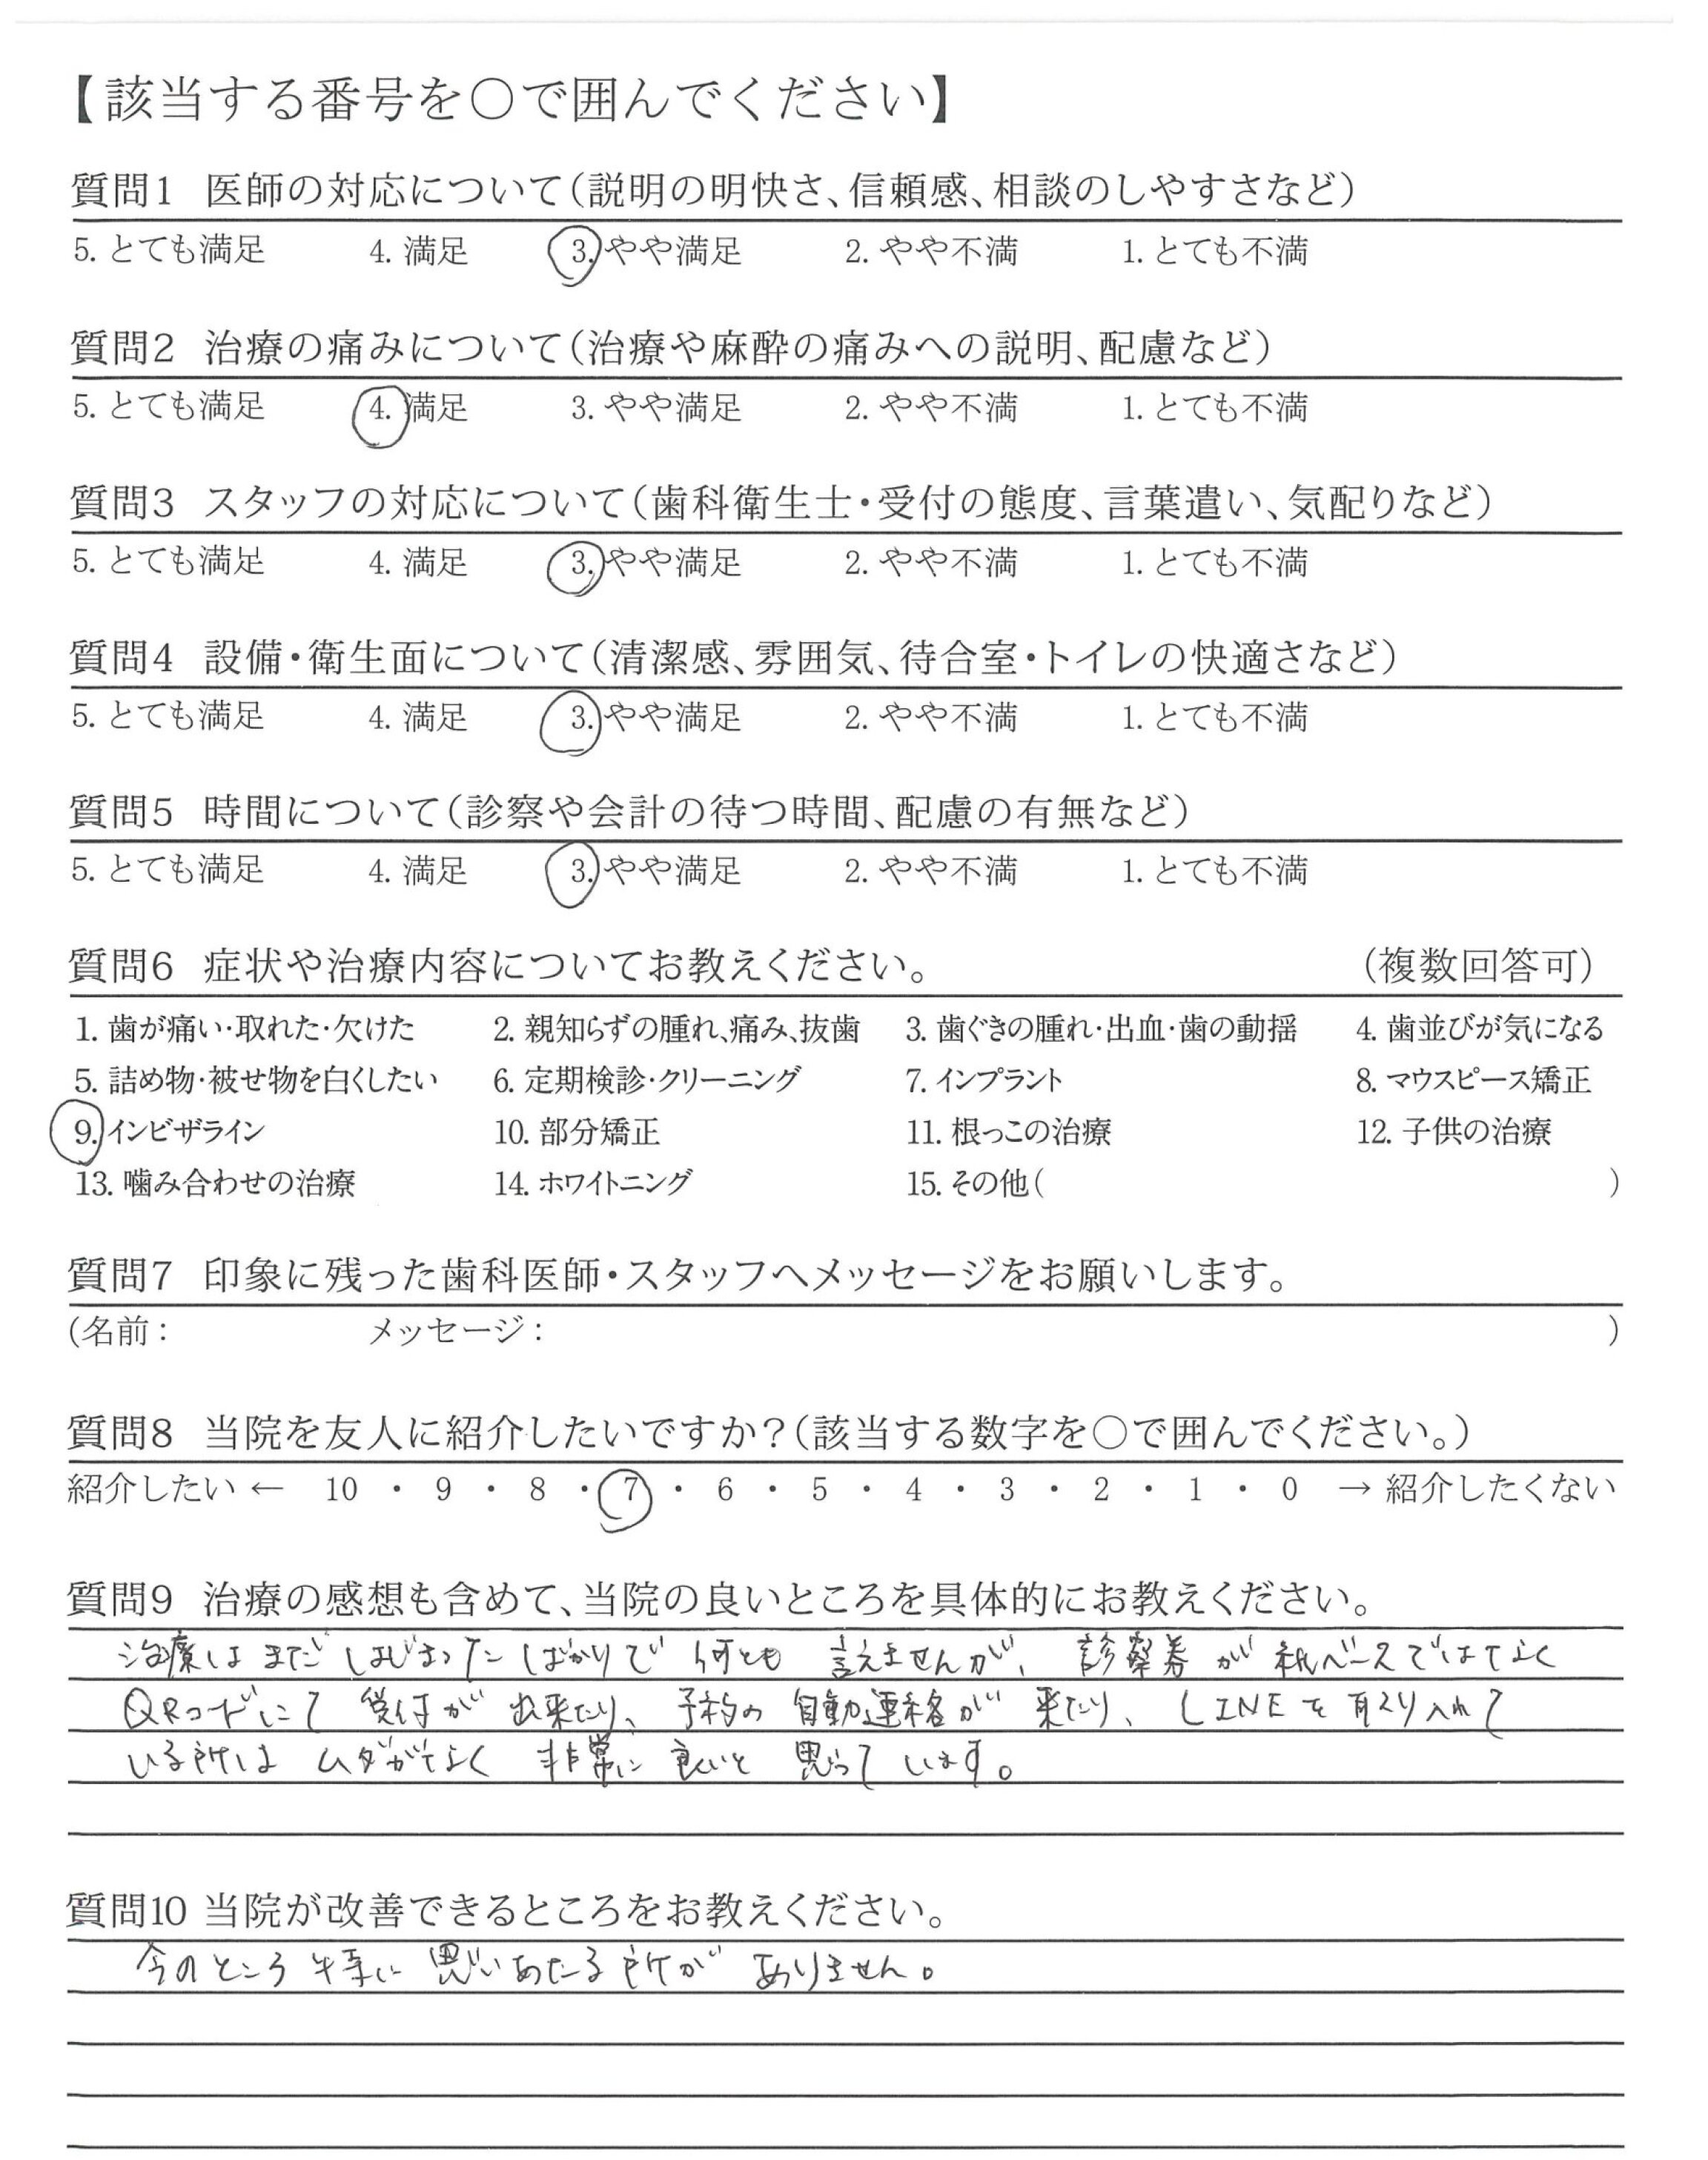 【該当する番号を○で囲んでください】
質問1 医師の対応について(説明の明快さ、信頼感、相談のしやすさなど)
5. とても満足 4. 満足 3. やや満足 2. やや不満 1. とても不満
質問2 治療の痛みについて(治療や麻酔の痛みへの説明、配慮など)
5. とても満足 4. 満足 3. やや満足 2. やや不満 1. とても不満
質問3 スタッフの対応について(歯科衛生士・受付の態度、言葉遣い、気配りなど)
5. とても満足 4. 満足 3. やや満足 2. やや不満 1. とても不満
質問4 設備・衛生面について(清潔感、雰囲気、待合室・トイレの快適さなど)
5. とても満足 4. 満足 3. やや満足 2. やや不満 1. とても不満
質問5 時間について(診察や会計の待つ時間、配慮の有無など)
5. とても満足 4. 満足 3. やや満足 2. やや不満 1. とても不満
質問6 症状や治療内容についてお教えください。 (複数回答可)
1. 歯が痛い・取れた・欠けた 2. 親知らずの腫れ、痛み、抜歯 3. 歯ぐきの腫れ・出血・歯の動揺 4. 歯並びが気になる
5. 詰め物・被せ物を白くしたい 6. 定期検診・クリーニング 7. インプラント 8. マウスピース矯正
9. インビザライン 10. 部分矯正 11. 根っこの治療 12. 子供の治療
13. 噛み合わせの治療 14. ホワイトニング 15. その他( )
質問7 印象に残った歯科医師・スタッフへメッセージをお願いします。
(名前: メッセージ: )
質問8 当院を友人に紹介したいですか?(該当する数字を○で囲んでください。)
紹介したい ← 10 ・ 9 ・ 8 ・ 7 ・ 6 ・ 5 ・ 4 ・ 3 ・ 2 ・ 1 ・ 0 → 紹介したくない
質問9 治療の感想も含めて、当院の良いところを具体的にお教えください。
治療はまだはじまったばかりで何とも言えませんが、診察券が紙ベースではなく
QRコードにて受付が出来たり、予約の自動連絡が来たり、LINEを取り入れて
いる所はムダがなく非常に良いと思っています。
質問10 当院が改善できるところをお教えください。
今のところ特に思いあたる所がありません。